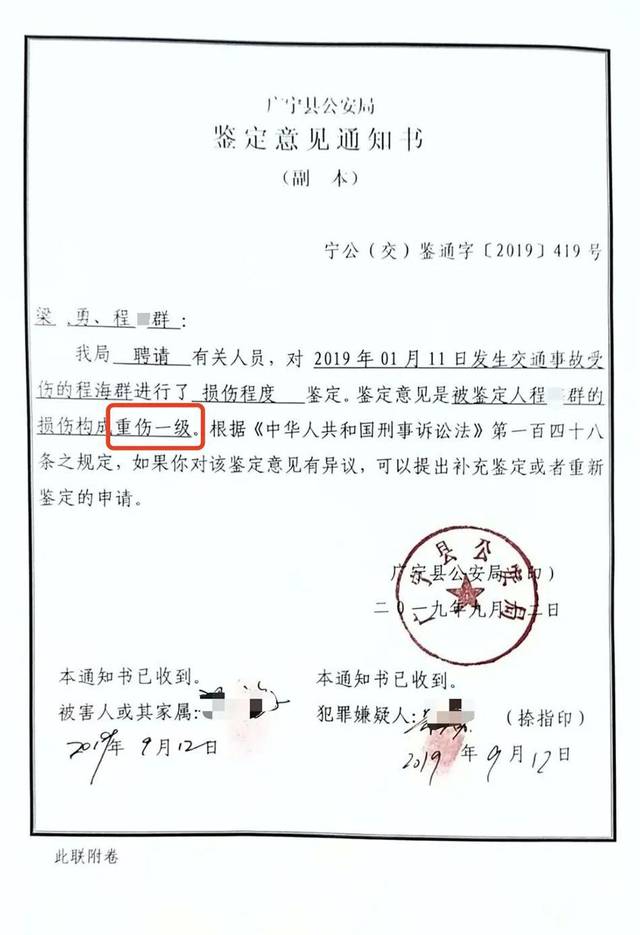 广宁县公安局
鉴定意见通知书
(副 本)
宁公(交)鉴通字〔2019〕419号
梁 勇、程 群:
我局 聘请 有关人员,对 2019年01月11日发生交通事故受
伤的程海群进行了 损伤程度 鉴定。鉴定意见是被鉴定人程 群的
损伤构成重伤一级。根据《中华人民共和国刑事诉讼法》第一百四十八
条之规定,如果你对该鉴定意见有异议,可以提出补充鉴定或者重新
鉴定的申请。
广宁县公安局
广宁县公安局 印)
二〇一九年九月 二日
本通知书已收到。
被害人或其家属:
2019年9月12日
本通知书已收到。
犯罪嫌疑人: (捺指印)
2019年9月12日
此联附卷